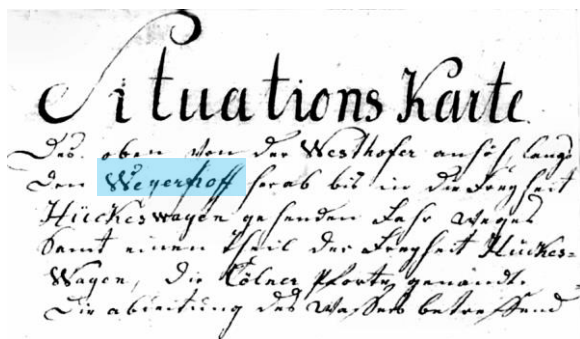 Situations Karte
Des oben von der Westhofer anhöh, langs
dem Weyerhoff herab bis in die Freyheit
Hückeswagen gehenden Fahr Weges
Samt einen Theil der Freyheit Hückes=
Wagen, die Cölner Pforte genandt. =
Die ableitung des Wassers betreffend